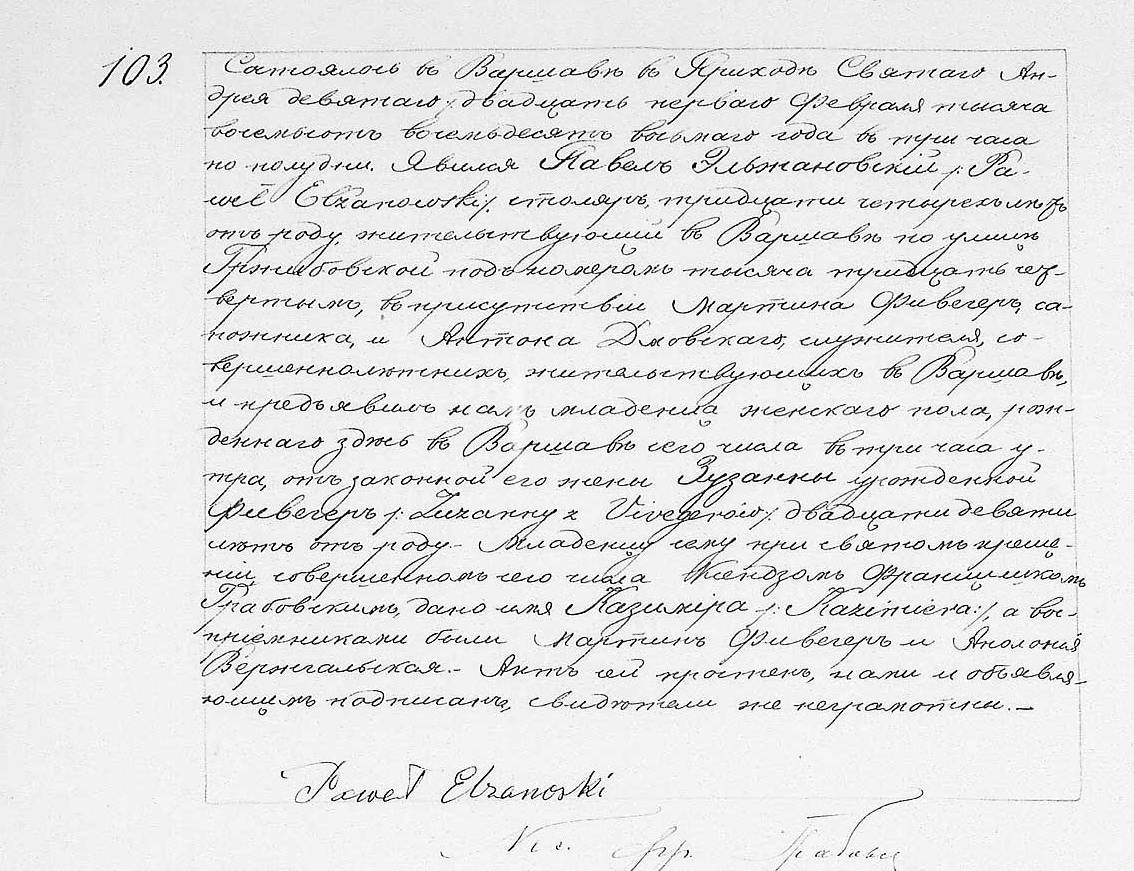 103.
Состоялось въ Варшавѣ въ Приходѣ Святаго Ан-
дрея девятаго /двадцать перваго Февраля тысяча
восемьсотъ восемьдесятъ восьмаго года въ три часа
по полудни. Явился Павелъ Эльжановскій /: Pa-
weł Elzanowski/, столяръ, тридцати четырехъ лѣтъ
отъ роду, жительствующій въ Варшавѣ по улицѣ
Гржибовской подъ номеромъ тысяча тридцать чет-
вертымъ, въ присутствіи Мартина Фивегеръ, са-
пожника, и Антона Дмовскаго, служителя, со-
вершеннолѣтнихъ, жительствующихъ въ Варшавѣ,
и предъявилъ намъ младенца женскаго пола, рож-
деннаго здѣсь въ Варшавѣ сего числа въ три часа у-
тра, отъ законной его жены Зузанны урожденной
Фивегеръ /: Zuzanny z Vivegerow/. двадцати девяти
лѣтъ отъ роду.- Младенцу сему при святомъ креще-
ніи, совершенномъ сего числа Ксендзомъ Францишкомъ
Грабовскимъ, дано имя Казиміра /: Kazimiera:/, а вос-
пріемниками были Мартинъ Фивегеръ и Аполонія
Вержгальская.- Актъ сей прочтенъ, нами и объявля-
ющимъ подписанъ, свидѣтели же неграмотны.-
Paweł Elzanoski
Кс. Фр.